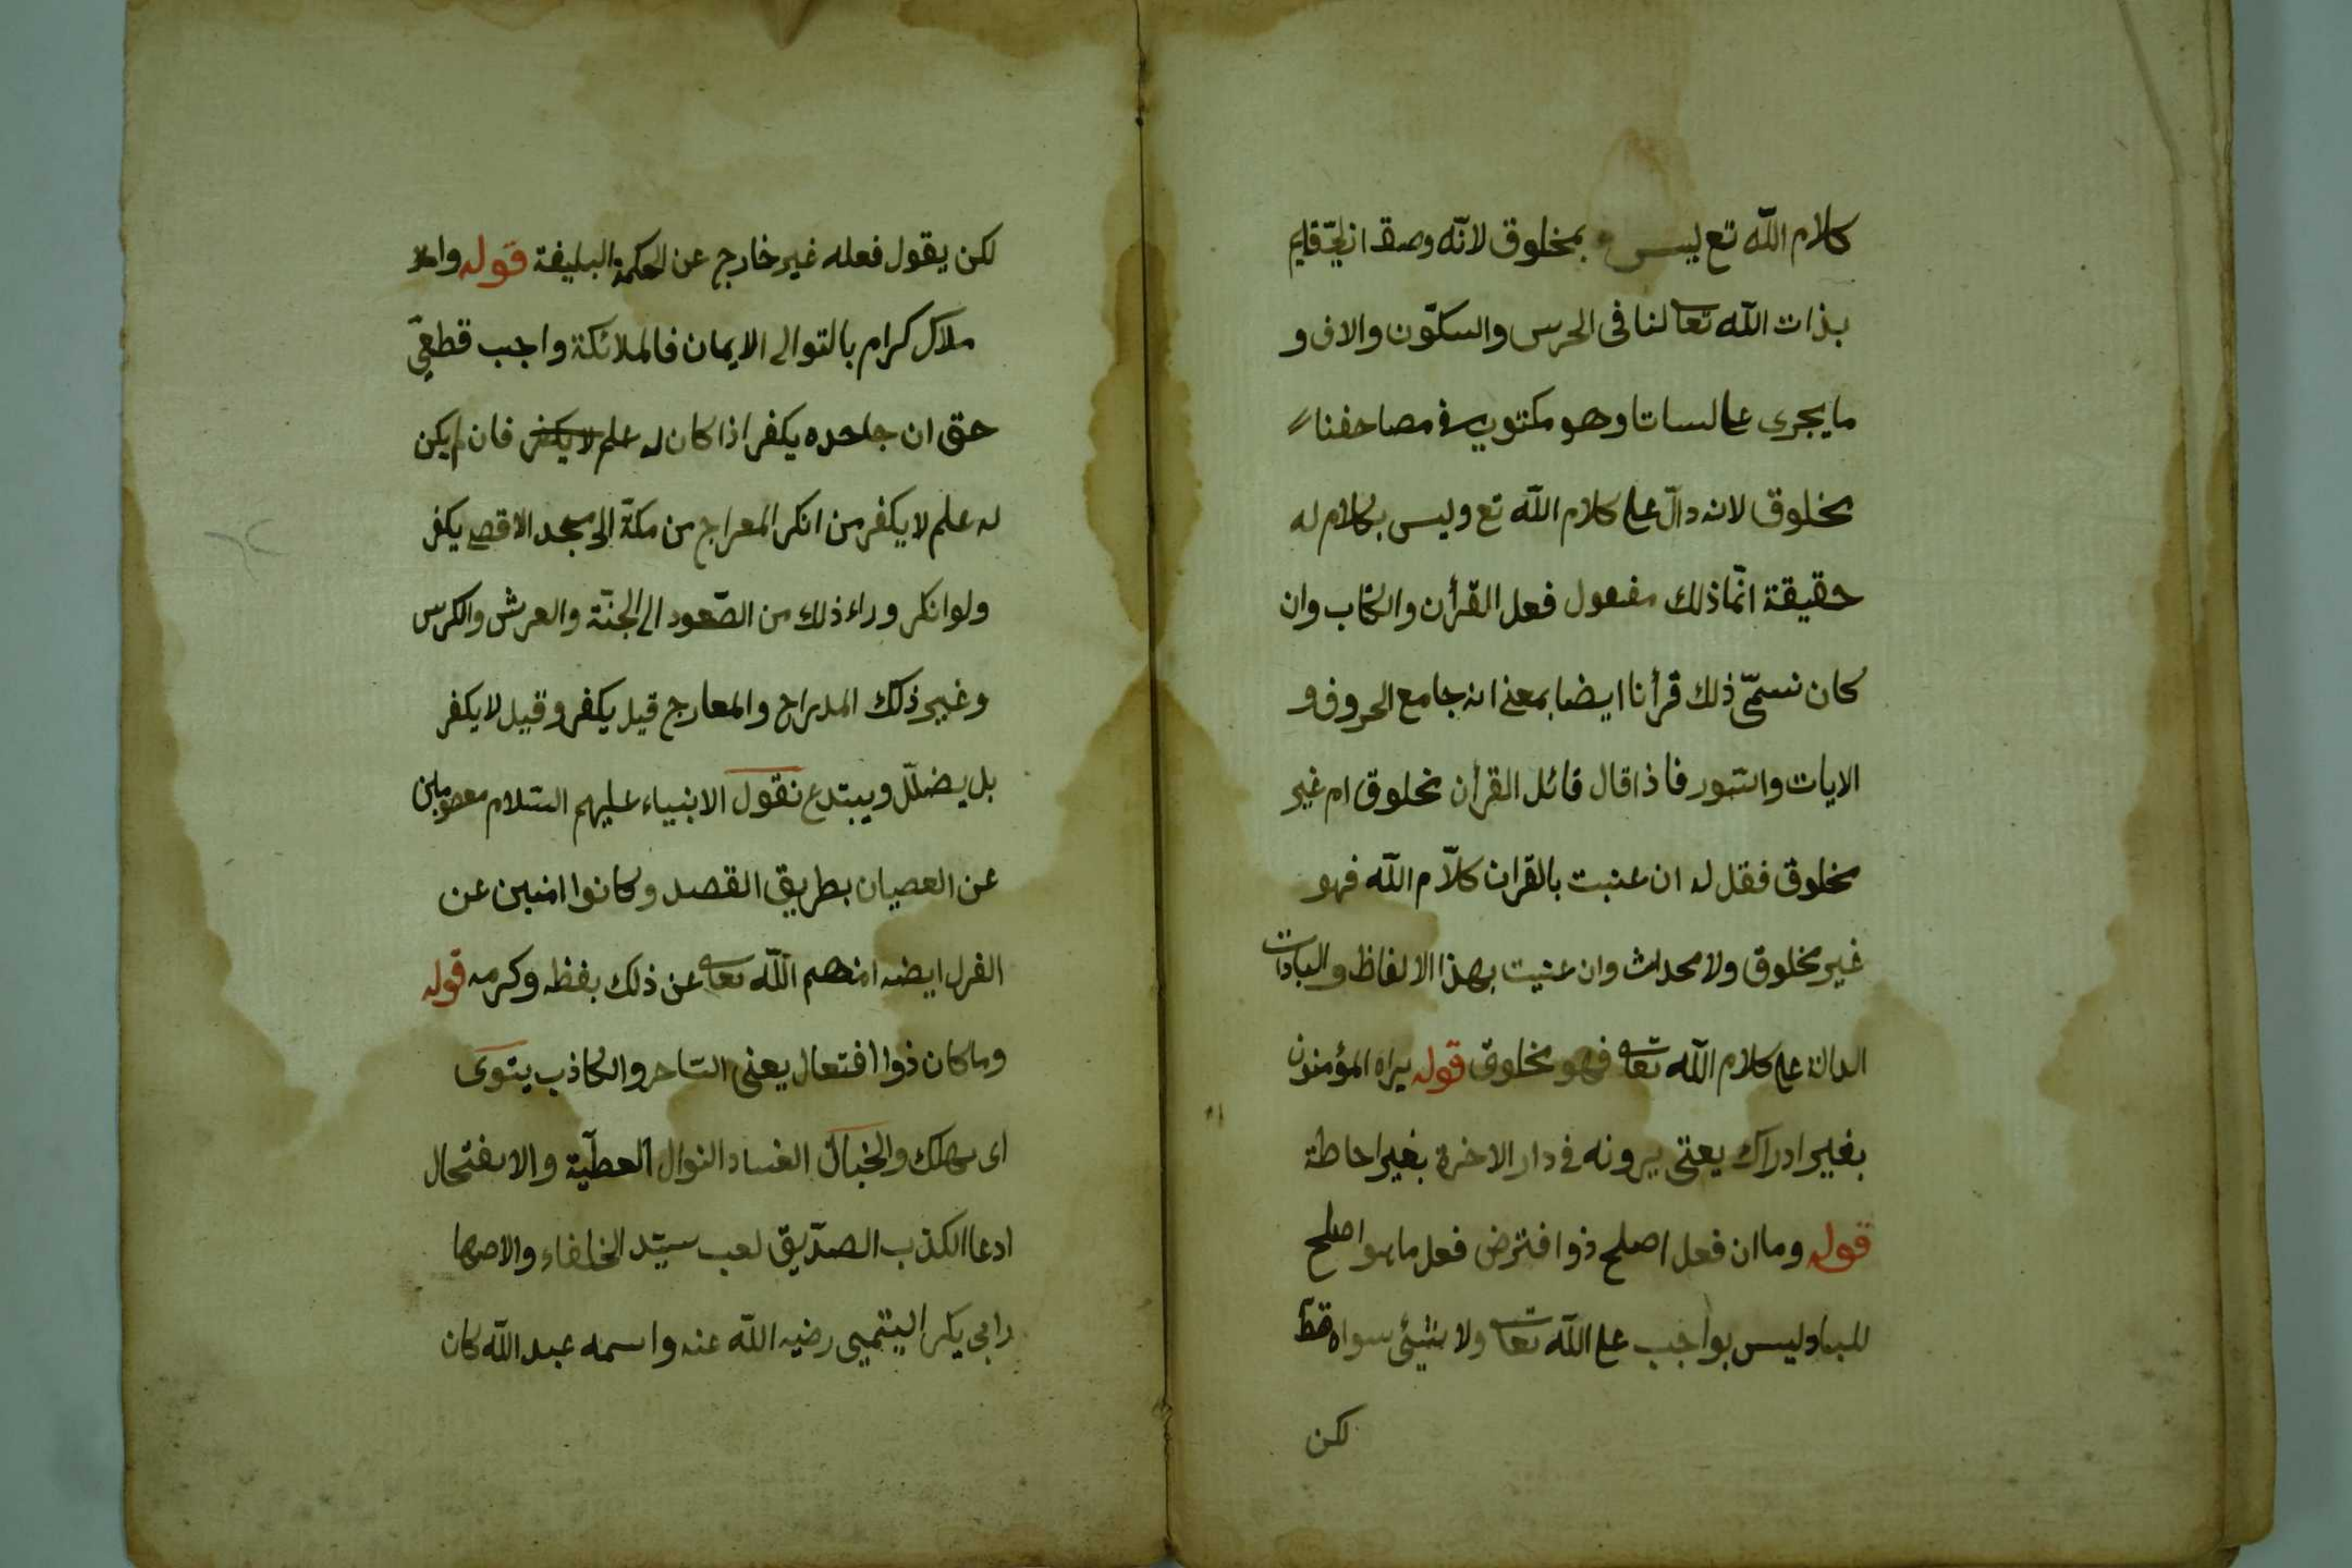 كلام الله تع ليس بمخلوق لانّه وصف ازليّ قايم
بذات الله تعا لنا فى الحرس والسكوّن والاف و
ما يجرى على لساتنا وهو مكتوب فى مصاحفنا
مخلوق لانه دالّ على كلام الله تع وليس بكلام له
حقيقة انّما ذلك مفعول فعل القرأن والكتاب وان
كان نسمّى ذلك قرأنا ايضا بمعنى انه جامع الحروف و
الايات والسّور فاذا قال قائل القرأن مخلوق ام غير
مخلوق فقل له ان عنبت بالقران كلاّم الله فهو
غير مخلوق ولا محداث وان عنيت بهذا الالفاظ والعبادات
الدالة على كلام الله تعا فهو مخلوق قوله يراه المؤمنون
بغير ادراك يعنى يرونه فى دار الاخرة بغير احاطة
قوله وما ان فعل اصلح ذو افترض فعل ما هو اصلح
للعباد ليس بواجب على الله تعا ولا شيئ سواه قطّ
لكن
لكن يقول فعله غير خارج عن الحكمة البليغة قوله واملا
ملاك كرام بالتوالى الايمان فالملائكة واجب قطعىّ
حتى ان جاحده يكفر اذا كان له علم لا يكفر فان لم يكن
له علم لا يكفر من انكر المعراج من مكّة الى مسجد الاقصى يكفر
ولو انكر وراء ذلك من الصّعود الى الجنّة والعرش والكرس
وغير ذلك المدراج والمعارج قيل يكفر وقيل لا يكفر
بل يضلّل ويبتدع نقول الانبياء عليهم السّلام معصومين
عن العصيان بطريق القصد وكانوا امنين عن
الغرل ايضه امنهم الله تعا عن ذلك بفظه وكرمه قوله
وما كان ذوا افتعال يعنى السّاحر والكاذب يتوى
اى يهلك والخبال الفساد النوال العطيّة والافتحال
ادعا الكذب الصدّيق لعب سيّد الخلفاء والاصها
رابى بكر اليتميى رضيه الله عنه واسمه عبد الله كان